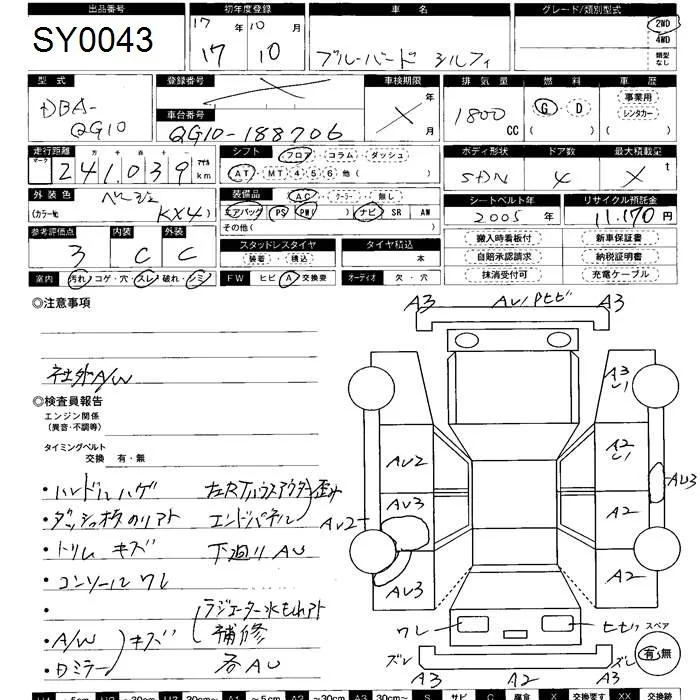 出品番号 初年度登録 車名 グレード/類別型式
SY0043 17年10月 2WD
17 10 ブルーバード シルフィ 4WD
類型なし
型式 登録番号 車検期限 排気量 燃料 車歴
DBA-QG10 X X 年 月 1800 CC G D 事業用
( ) レンタカー
車台番号 ( )
QG10-188706
走行距離 シフト フロア コラム ダッシュ ボディ形状 ドア数 最大積載量
マーク 十 万 千 百 十 一 マイル
241,039 km AT MT 4 5 6 他( ) SDN 4 X t
外装色 装備品 AC クーラー 無し シートベルト年 リサイクル預託金
ベージュ エアバッグ( ) PS PW( ) ナビ SR AW 2005年 11,170円
(カラー№ KX4) その他( )
参考評価点 内装 外装 スタッドレスタイヤ タイヤ積込 搬入時看板付 新車保証書
3 C C 装着・積込 本 自賠承認請求 納税証明書
室内 汚れ・コゲ・穴・スレ・破れ・シミ FW ヒビ・A・交換要 オーディオ 欠・穴 抹消受付可 充電ケーブル
◎注意事項
社外A/W
◎検査員報告
エンジン関係
(異音・不調等)
タイミングベルト
交換 有・無
・ハンドルハゲ 左RTハウスアウター歪み
・ダッシュ板のリアト エンドパネル
・トリム キズ 下廻り AU
・コンソール ワレ
・ ラジエーター水もれアト
・A/W キズ 補修
・Dミラー 各AU
A3 AU/Pヒビ A3
A3
U1
AU2 A2
U1
AU3 AU3
AU2 A2
AU3 A2
ワレ ヒビワ スペア
有・無
ズレ ズレ
A3 A2 A3
U1 ~5cm U2 ~20cm U3 20cm~ A1 ~5cm A2 ~30cm A3 30cm~ S サビ C 腐食 X 交換要す XX 交換跡